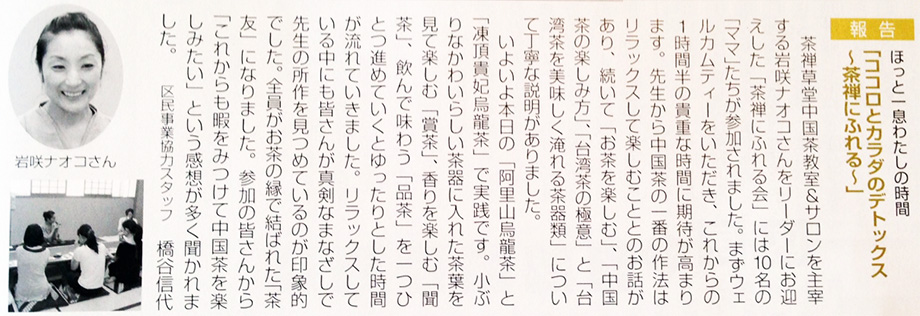 報告
ほっと一息わたしの時間
「ココロとカラダのデトックス
～茶禅にふれる～」
茶禅草堂中国茶教室&サロンを主宰
する岩咲ナオコさんをリーダーにお迎
えした「茶禅にふれる会」には10名の
「ママ」たちが参加されました。まずウェ
ルカムティーをいただき、これからの
1時間半の貴重な時間に期待が高まり
ます。先生から中国茶の一番の作法は
リラックスして楽しむこととのお話が
あり、続いて「お茶を楽しむ」、「中国
茶の楽しみ方」「台湾茶の極意」と「台
湾茶を美味しく淹れる茶器類」につい
て丁寧な説明がありました。
いよいよ本日の「阿里山烏龍茶」と
「凍頂貴妃烏龍茶」で実践です。小ぶ
りなかわいらしい茶器に入れた茶葉を
見て楽しむ「賞茶」、香りを楽しむ「聞
茶」、飲んで味わう「品茶」を一つひ
とつ進めていくとゆったりとした時間
が流れていきました。リラックスして
いる中にも皆さんが真剣なまなざしで
先生の所作を見つめているのが印象的
でした。全員がお茶の縁で結ばれた「茶
友」になりました。参加の皆さんから
「これからも暇をみつけて中国茶を楽
しみたい」という感想が多く聞かれま
した。 区民事業協力スタッフ 橋谷信代
岩咲ナオコさん